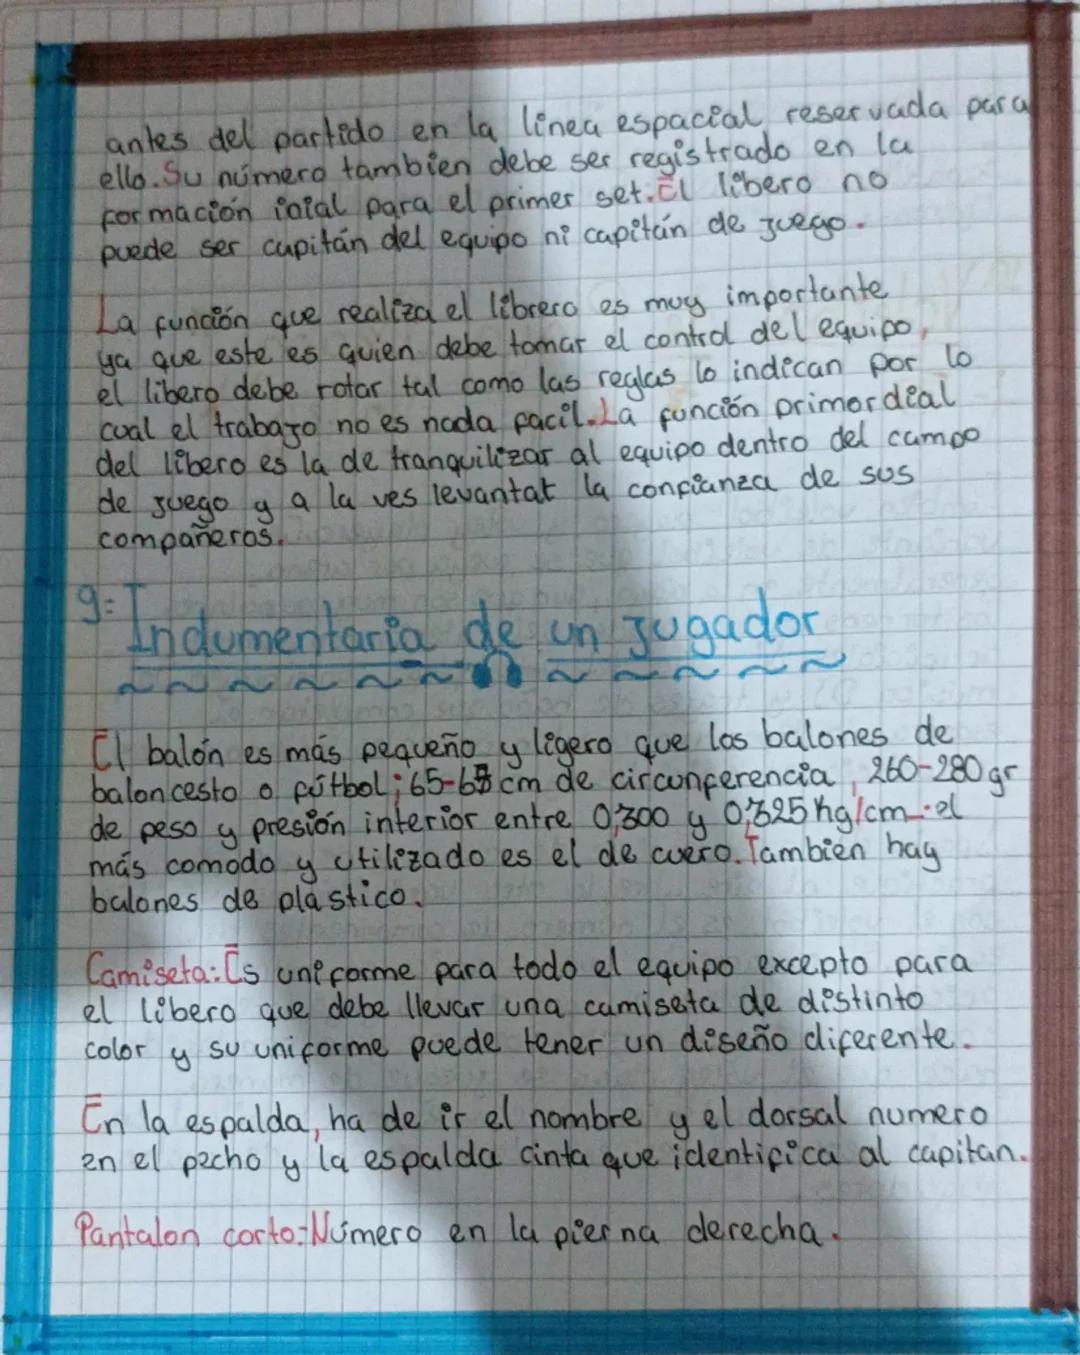 antes del partido en la línea espacial reservada para
ello. Su número tambien debe ser registrado en la
formación inial para el primer set. El libero no
puede ser capitán del equipo ni capitán de juego.
La función que realiza el librero es muy importante
ya que este es quien debe tomar el control del equipo,
el libero debe rotar tal como las reglas lo indican por lo
cual el trabajo no es nada facil. La función primordial
del libero es la de tranquilizar al equipo dentro del campo
de juego y a la ves levantat la confianza de sus
compañeros.
9= Indumentaria de un jugador
El balón es más pequeño y ligero que los balones de
baloncesto o fútbol; 65-67 cm de circunferencia, 260-280 gr
de peso y presión interior entre 0,300 y 0,325 kg/cm. el
más comodo y utilizado es el de cuero. Tambien hay
balones de plastico.
Camiseta: Es uniforme para todo el equipo excepto para
el libero que debe llevar una camiseta de distinto
color y su uniforme puede tener un diseño diferente.
En la espalda, ha de ir el nombre y el dorsal numero
en el pecho y la espalda cinta que identifica al capitan.
Pantalon corto: Número en la pierna derecha.